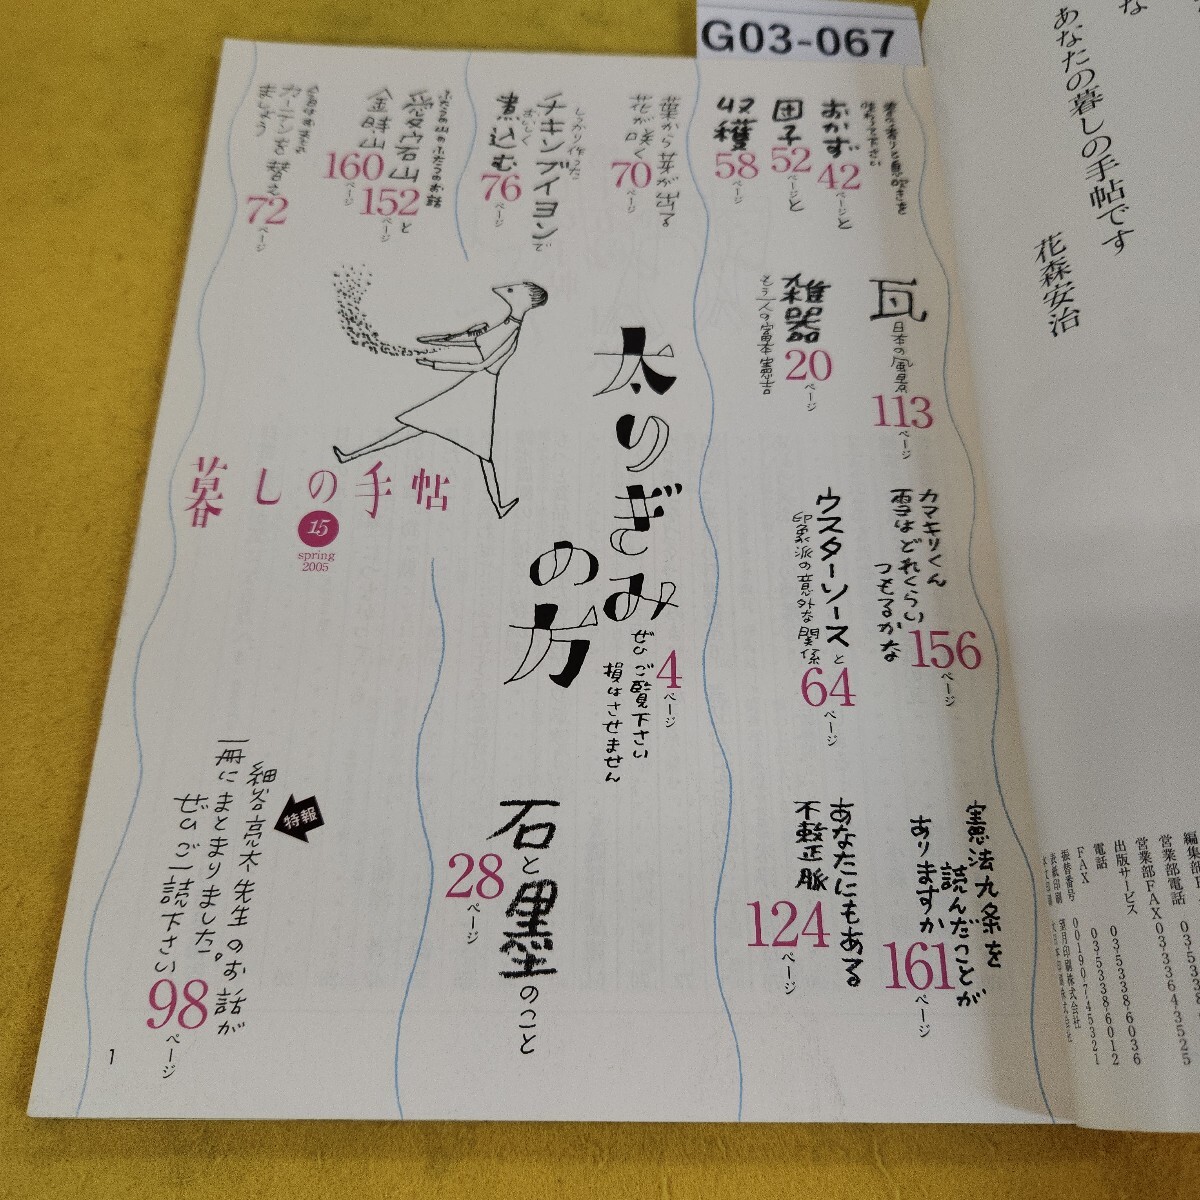 G03-067
あなたの暮しの手帖です
花森安治
編集部
営業部電話
営業部FAX 03-3364-3525
出版サービス 03-5338-6036
電話 03-5338-6012
FAX
振替番号 00190-7-45321
春の香りと息吹きを
味わって下さい
おかず
42ページと
団子
52ページと
収穫
58ページ
葉から芽が出る
花が咲く
70ページ
しっかり作った
チキンブイヨンで
おいしく
煮込む
76ページ
ふたつの山のふたつのお話
愛宕石山
152ページと
金時山
160ページ
カーテンを替え
ましょう
72ページ
瓦
日本の風景
113ページ
雑器
20ページ
もう一人の富本憲吉
カマキリくん
雪はどれくらい
つもるかな
156ページ
ウスターソースと
印象派の意外な関係
64ページ
太りぎみ
の方
4ページ
ぜひご覧下さい
損はさせません
暮しの手帖
15
spring
2005
憲法九条を
読んだことが
ありますか
161ページ
あなたにもある
不整正脈
124ページ
石と墨のこと
28ページ
特報
細谷亮太先生のお話が
一冊にまとまりました。
ぜひご一読下さい
98ページ
1